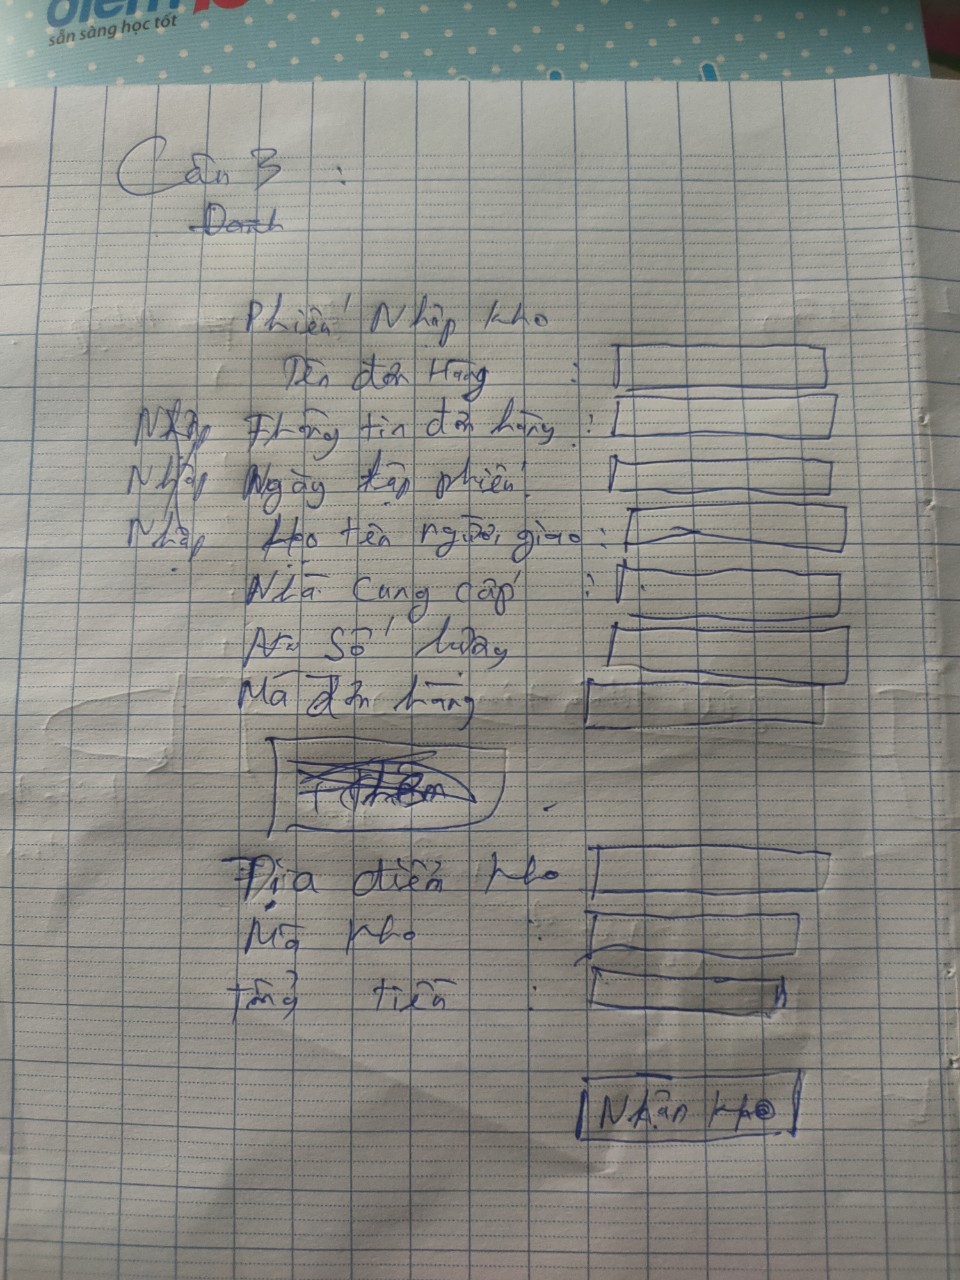 điểm 10
sẵn sàng học tốt
Câu 3 :
Danh
Phiếu Nhập kho
Tên đơn Hàng :
Nhập Thông tin đơn hàng :
Nhập Ngày lập phiếu :
Nhập Họ tên người giao :
Nhà Cung cấp :
Số lượng
Mã đơn hàng
Thêm
Địa điểm kho
Mã kho :
tổng tiền :
Nhận kho